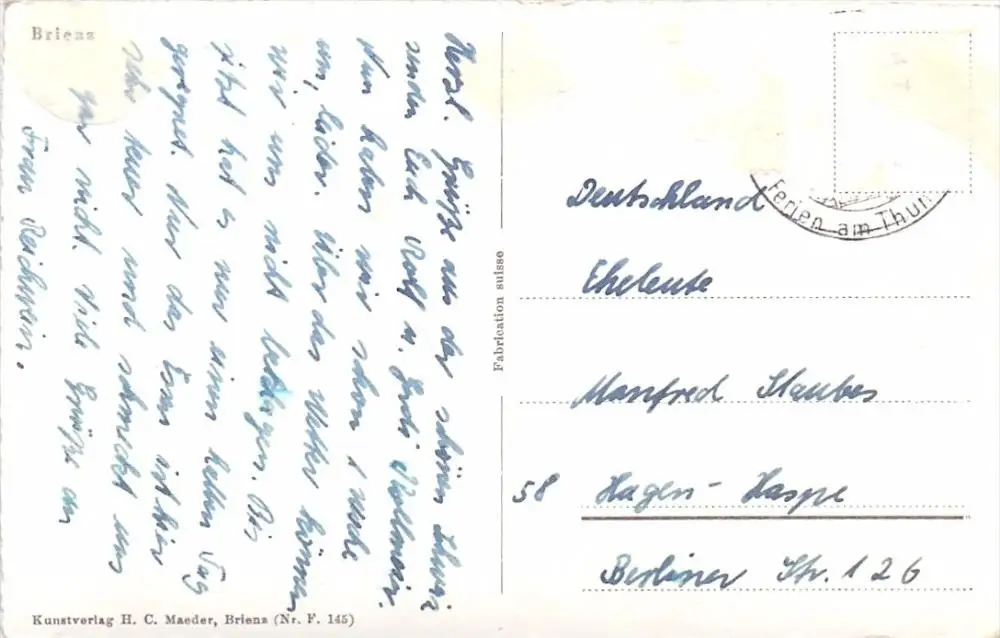 Brienz
Herzl. Grüße aus der schönen Schweiz
senden Euch Rolf u. Gerdi
Nun haben wir schon 1 Woche
um, leider. Über das Wetter können
wir uns nicht beklagen. Bis
jetzt hat es nur einen halben Tag
geregnet. Nur das Essen ist hier
sehr teuer und schmeckt uns
gar nicht. Viele Grüße an
Frau Reichwein.
Fabrication suisse
Ferien am Thun
Deutschland
Eheleute
Manfred Staubes
58 Hagen-Haspe
Berliner Str. 126
Kunstverlag H. C. Maeder, Brienz (Nr. F. 145)